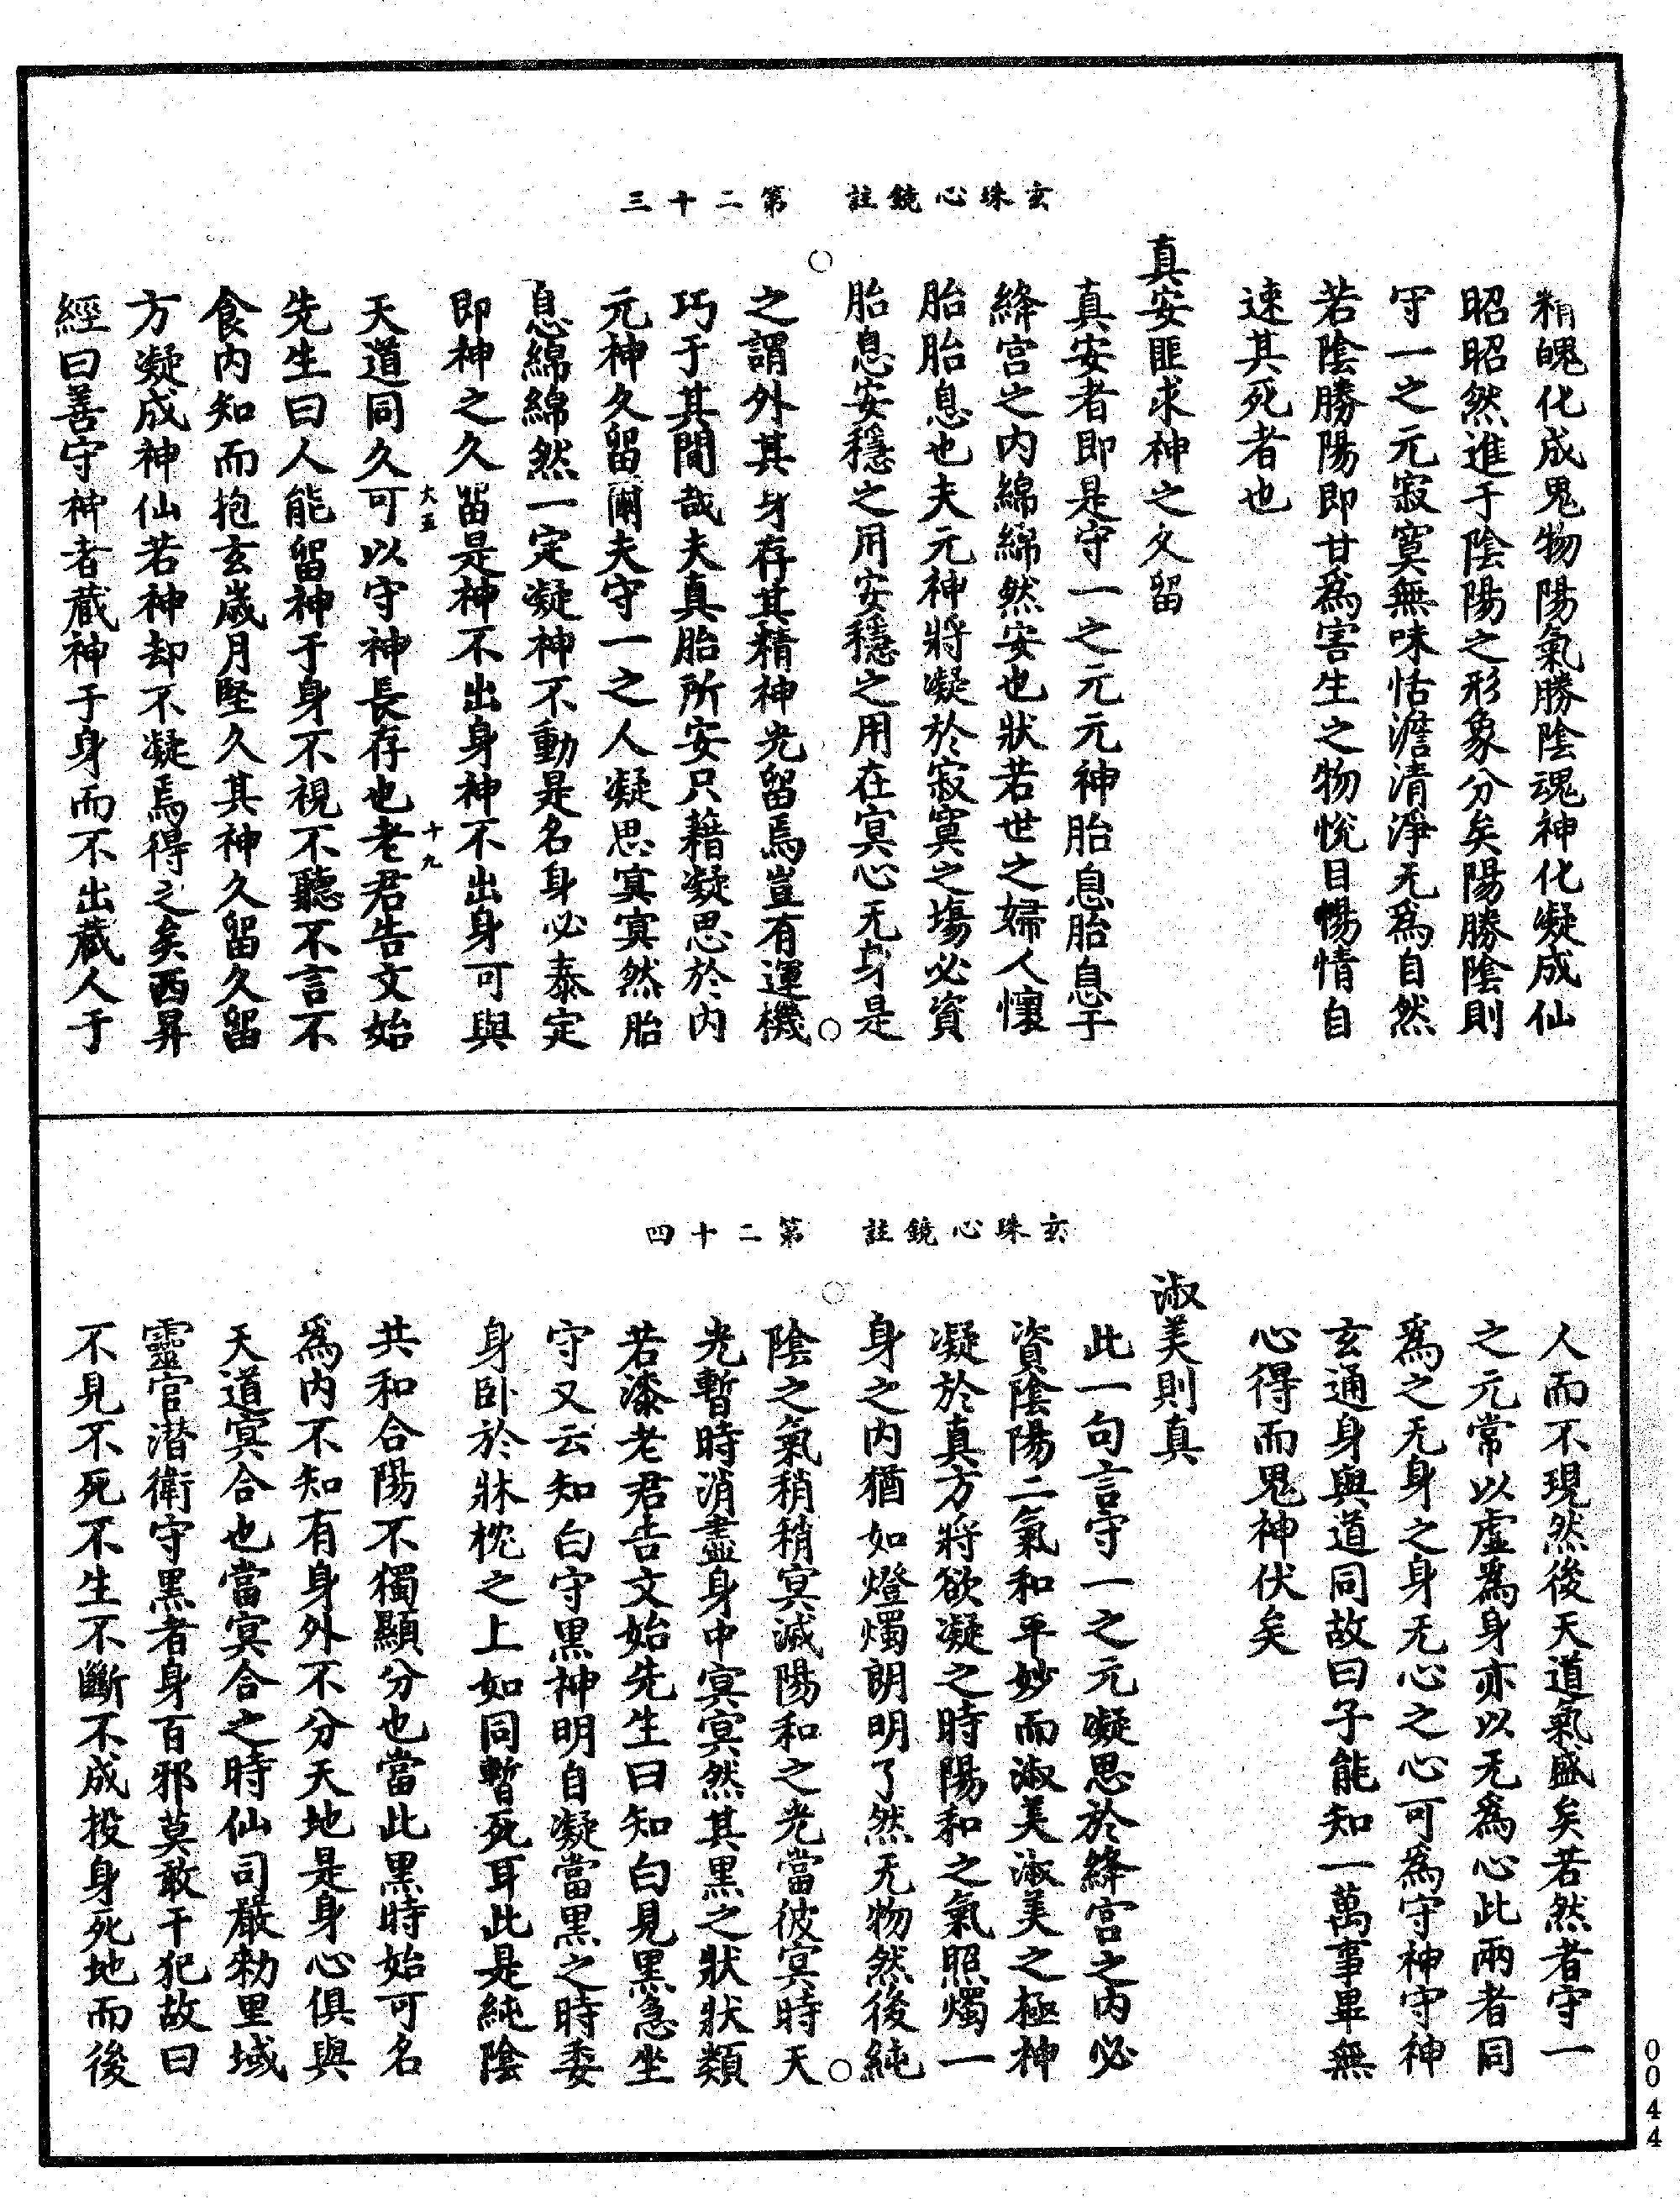 玄珠心鏡註　第二十三
精魄化成鬼物陽氣勝陰魂神化凝成仙
昭昭然進于陰陽之形象分矣陽勝陰則
守一之元寂寞無味恬澹清淨无爲自然
若陰勝陽即甘爲害生之物悅目暢情自
速其死者也
真安匪求神之久留
真安者即是守一之元元神胎息胎息于
絳宮之内綿綿然安也狀若世之婦人懷
胎胎息也夫元神將凝於寂寞之場必資
胎息安穩之用安穩之用在冥心无身是
之謂外其身存其精神光留焉豈有運機
巧于其間哉夫真胎所安只藉凝思於内
元神久留爾夫守一之人凝思寞寞然胎
息綿綿然一定凝神不動是名身必泰定
即神之久留是神不出身神不出身可與
天道同久可以守神長存也老君告文始
大五
十九
先生曰人能留神于身不視不聽不言不
食内知而抱玄歲月堅久其神久留久留
方凝成神仙若神却不凝焉得之矣西昇
經曰善守神者藏神于身而不出藏人于
玄珠心鏡註　第二十四
人而不現然後天道氣盛矣若然者守一
之元常以虛爲身亦以无爲心此兩者同
爲之无身之身无心之心可爲守神守神
玄通身與道同故曰子能知一萬事畢無
心得而鬼神伏矣
淑美則真
此一句言守一之元凝思於絳宮之内必
資陰陽二氣和平妙而淑美淑美之極神
凝於真方將欲凝之時陽和之氣照燭一
身之内猶如燈燭朗明了然无物然後純
陰之氣稍稍冥滅陽和之光當彼冥時天
光暫時消盡身中冥冥然其黑之狀狀類
若漆老君告文始先生曰知白見黑急坐
守又云知白守黑神明自凝當黑之時委
身卧於牀枕之上如同暫死耳此是純陰
共和合陽不獨顯分也當此黑時始可名
爲内不知有身外不分天地是身心俱與
天道冥合也當冥合之時仙司嚴勑里域
靈官潜衛守黑者身百邪莫敢干犯故曰
不見不死不生不斷不成投身死地而後
0044